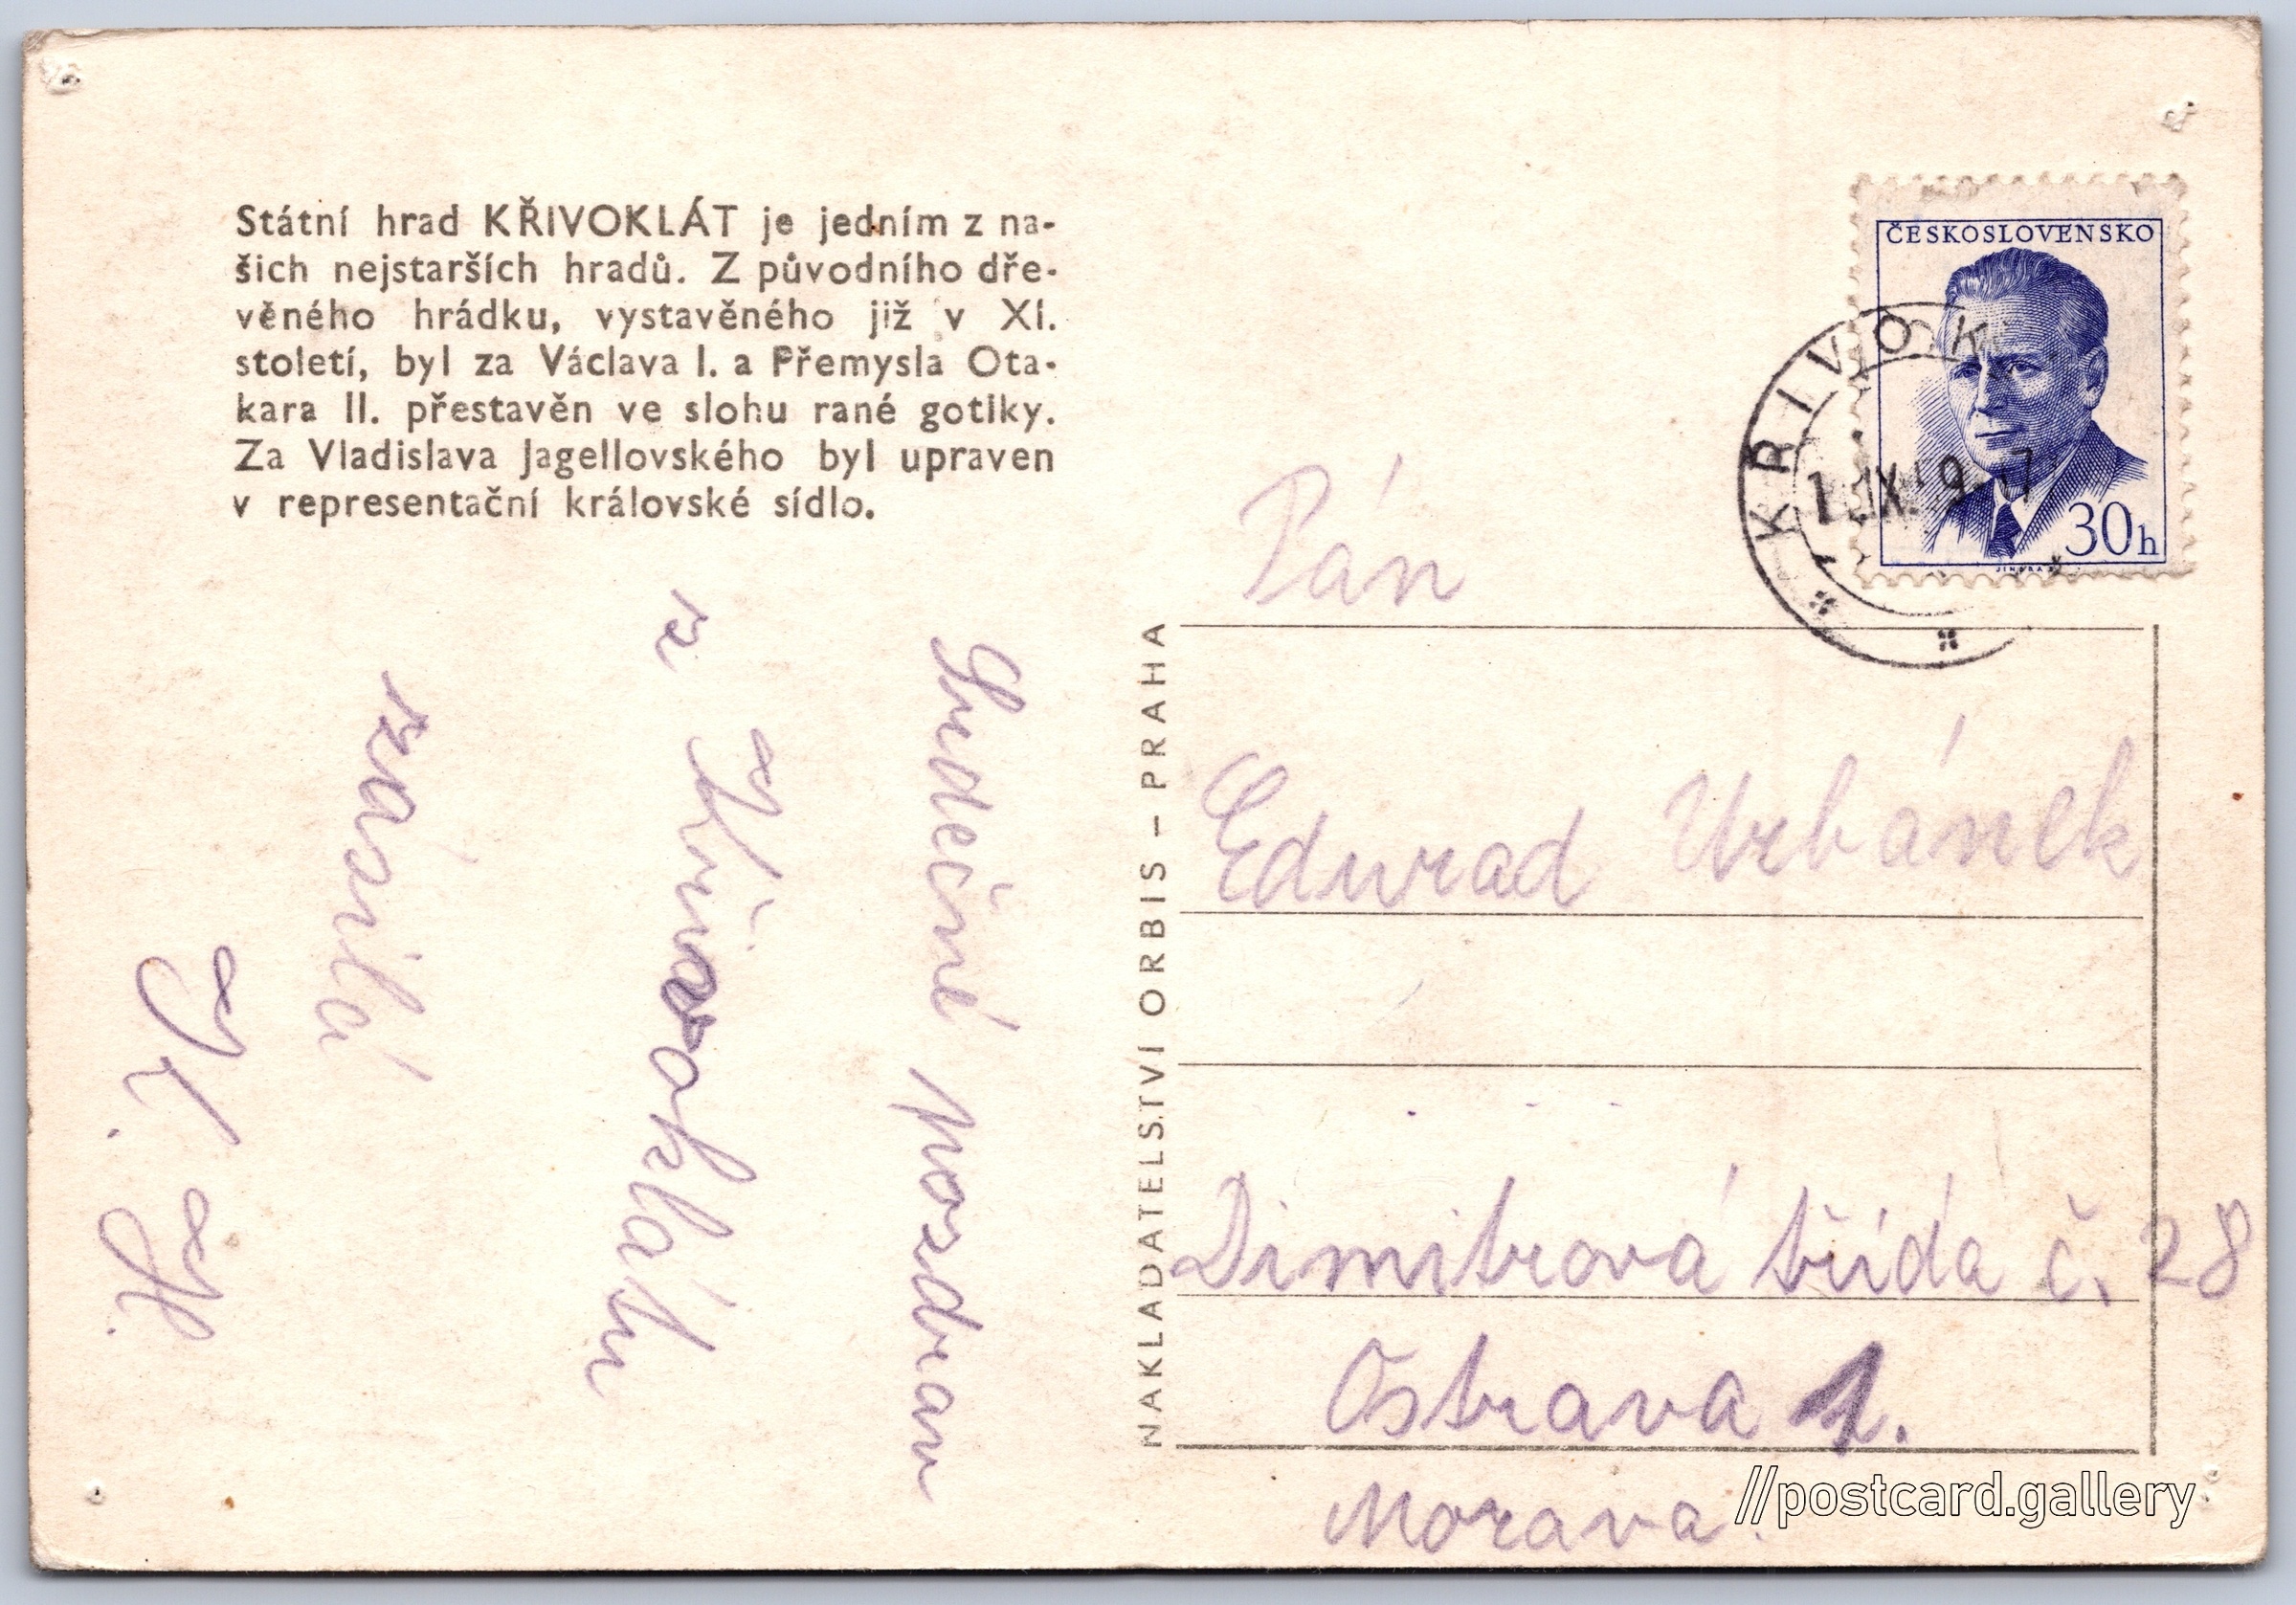 Státní hrad KŘIVOKLÁT je jedním z na-
šich nejstarších hradů. Z původního dře-
věného hrádku, vystavěného již v XI.
století, byl za Václava I. a Přemysla Ota-
kara II. přestavěn ve slohu rané gotiky.
Za Vladislava Jagellovského byl upraven
v representační královské sídlo.
Srdečné pozdrav
z Křivoklátu
zásílá
K. H.
NAKLADATELSTVÍ ORBIS – PRAHA
ČESKOSLOVENSKO
30h
JINDRA
KŘIVOK
Pán
Edurad Urbánek
Dimitrová třída č. 28
Ostrava 1.
Morava.
//postcard.gallery